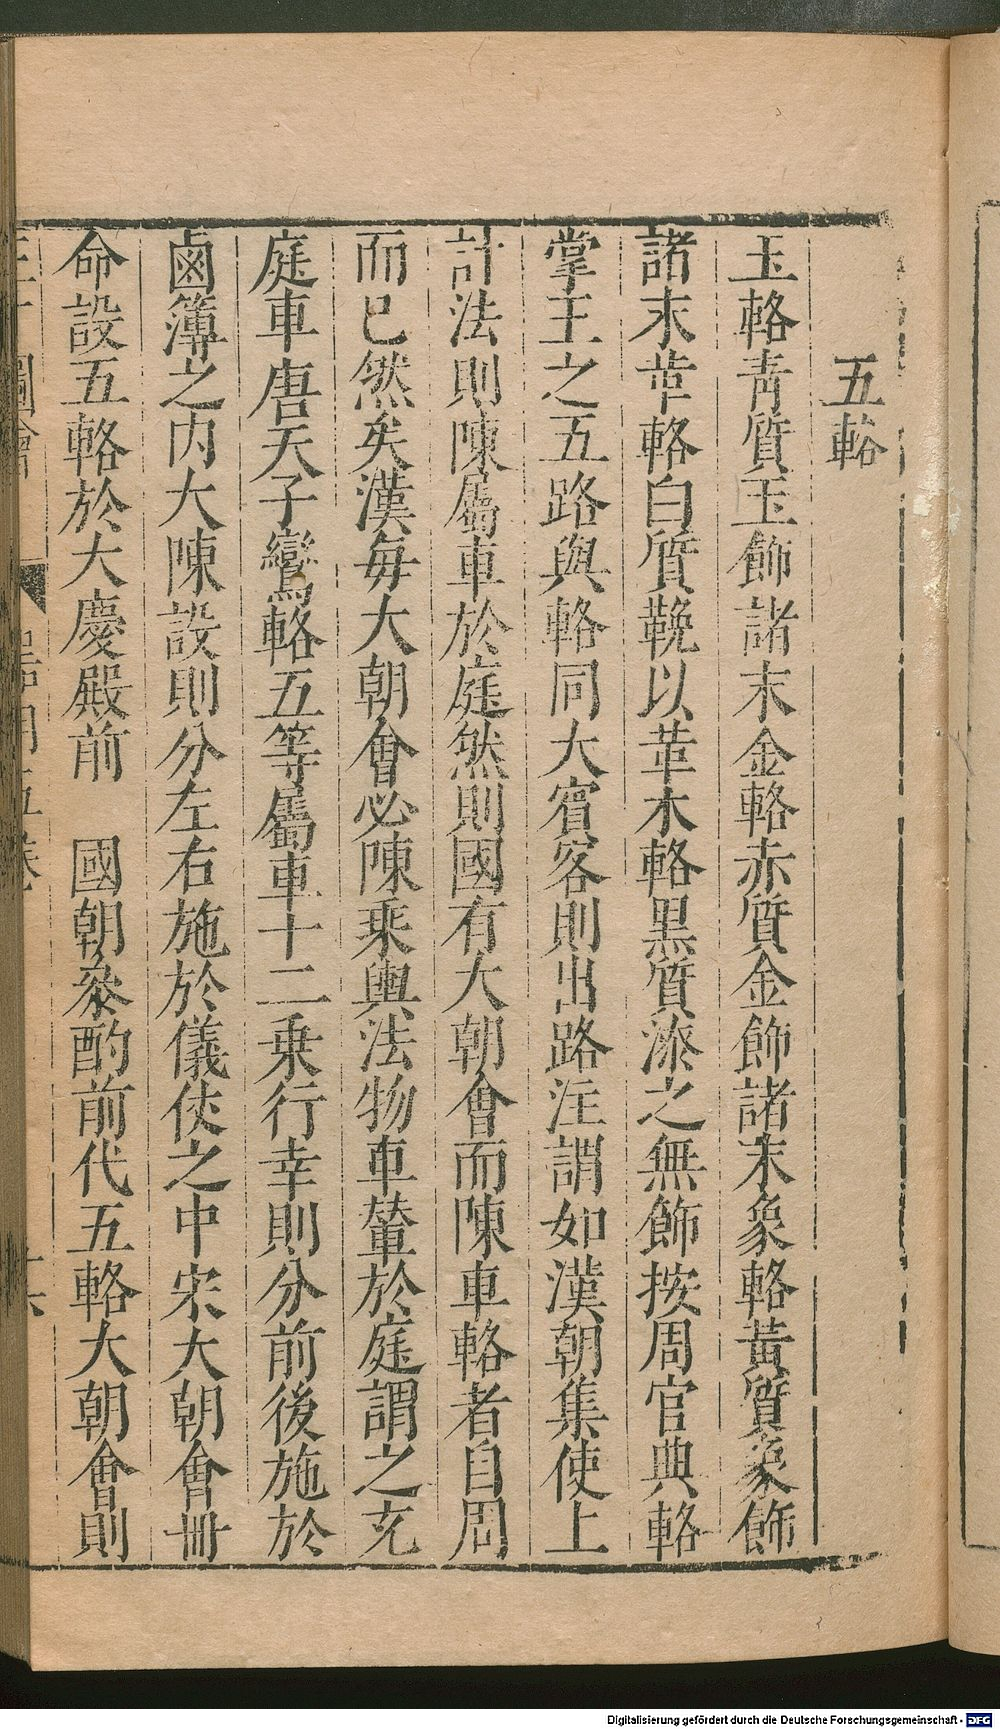 五輅
玉輅青質玉飾諸末金輅赤質金飾諸末象輅黃質象飾
諸末革輅白質鞔以革木輅黑質漆之無飾按周官典輅
掌王之五路與輅同大賓客則出路注謂如漢朝集使上
計法則陳屬車於庭然則國有大朝會而陳車輅者自周
而已然矣漢每大朝會必陳乘輿法物車輦於庭謂之充
庭車唐天子鸞輅五等屬車十二乗行幸則分前後施於
鹵簿之内大陳設則分左右施於儀使之中宋大朝會冊
命設五輅於大慶殿前　國朝叅酌前代五輅大朝會則
圖會
Digitalisierung gefördert durch die Deutsche Forschungsgemeinschaft - DFG